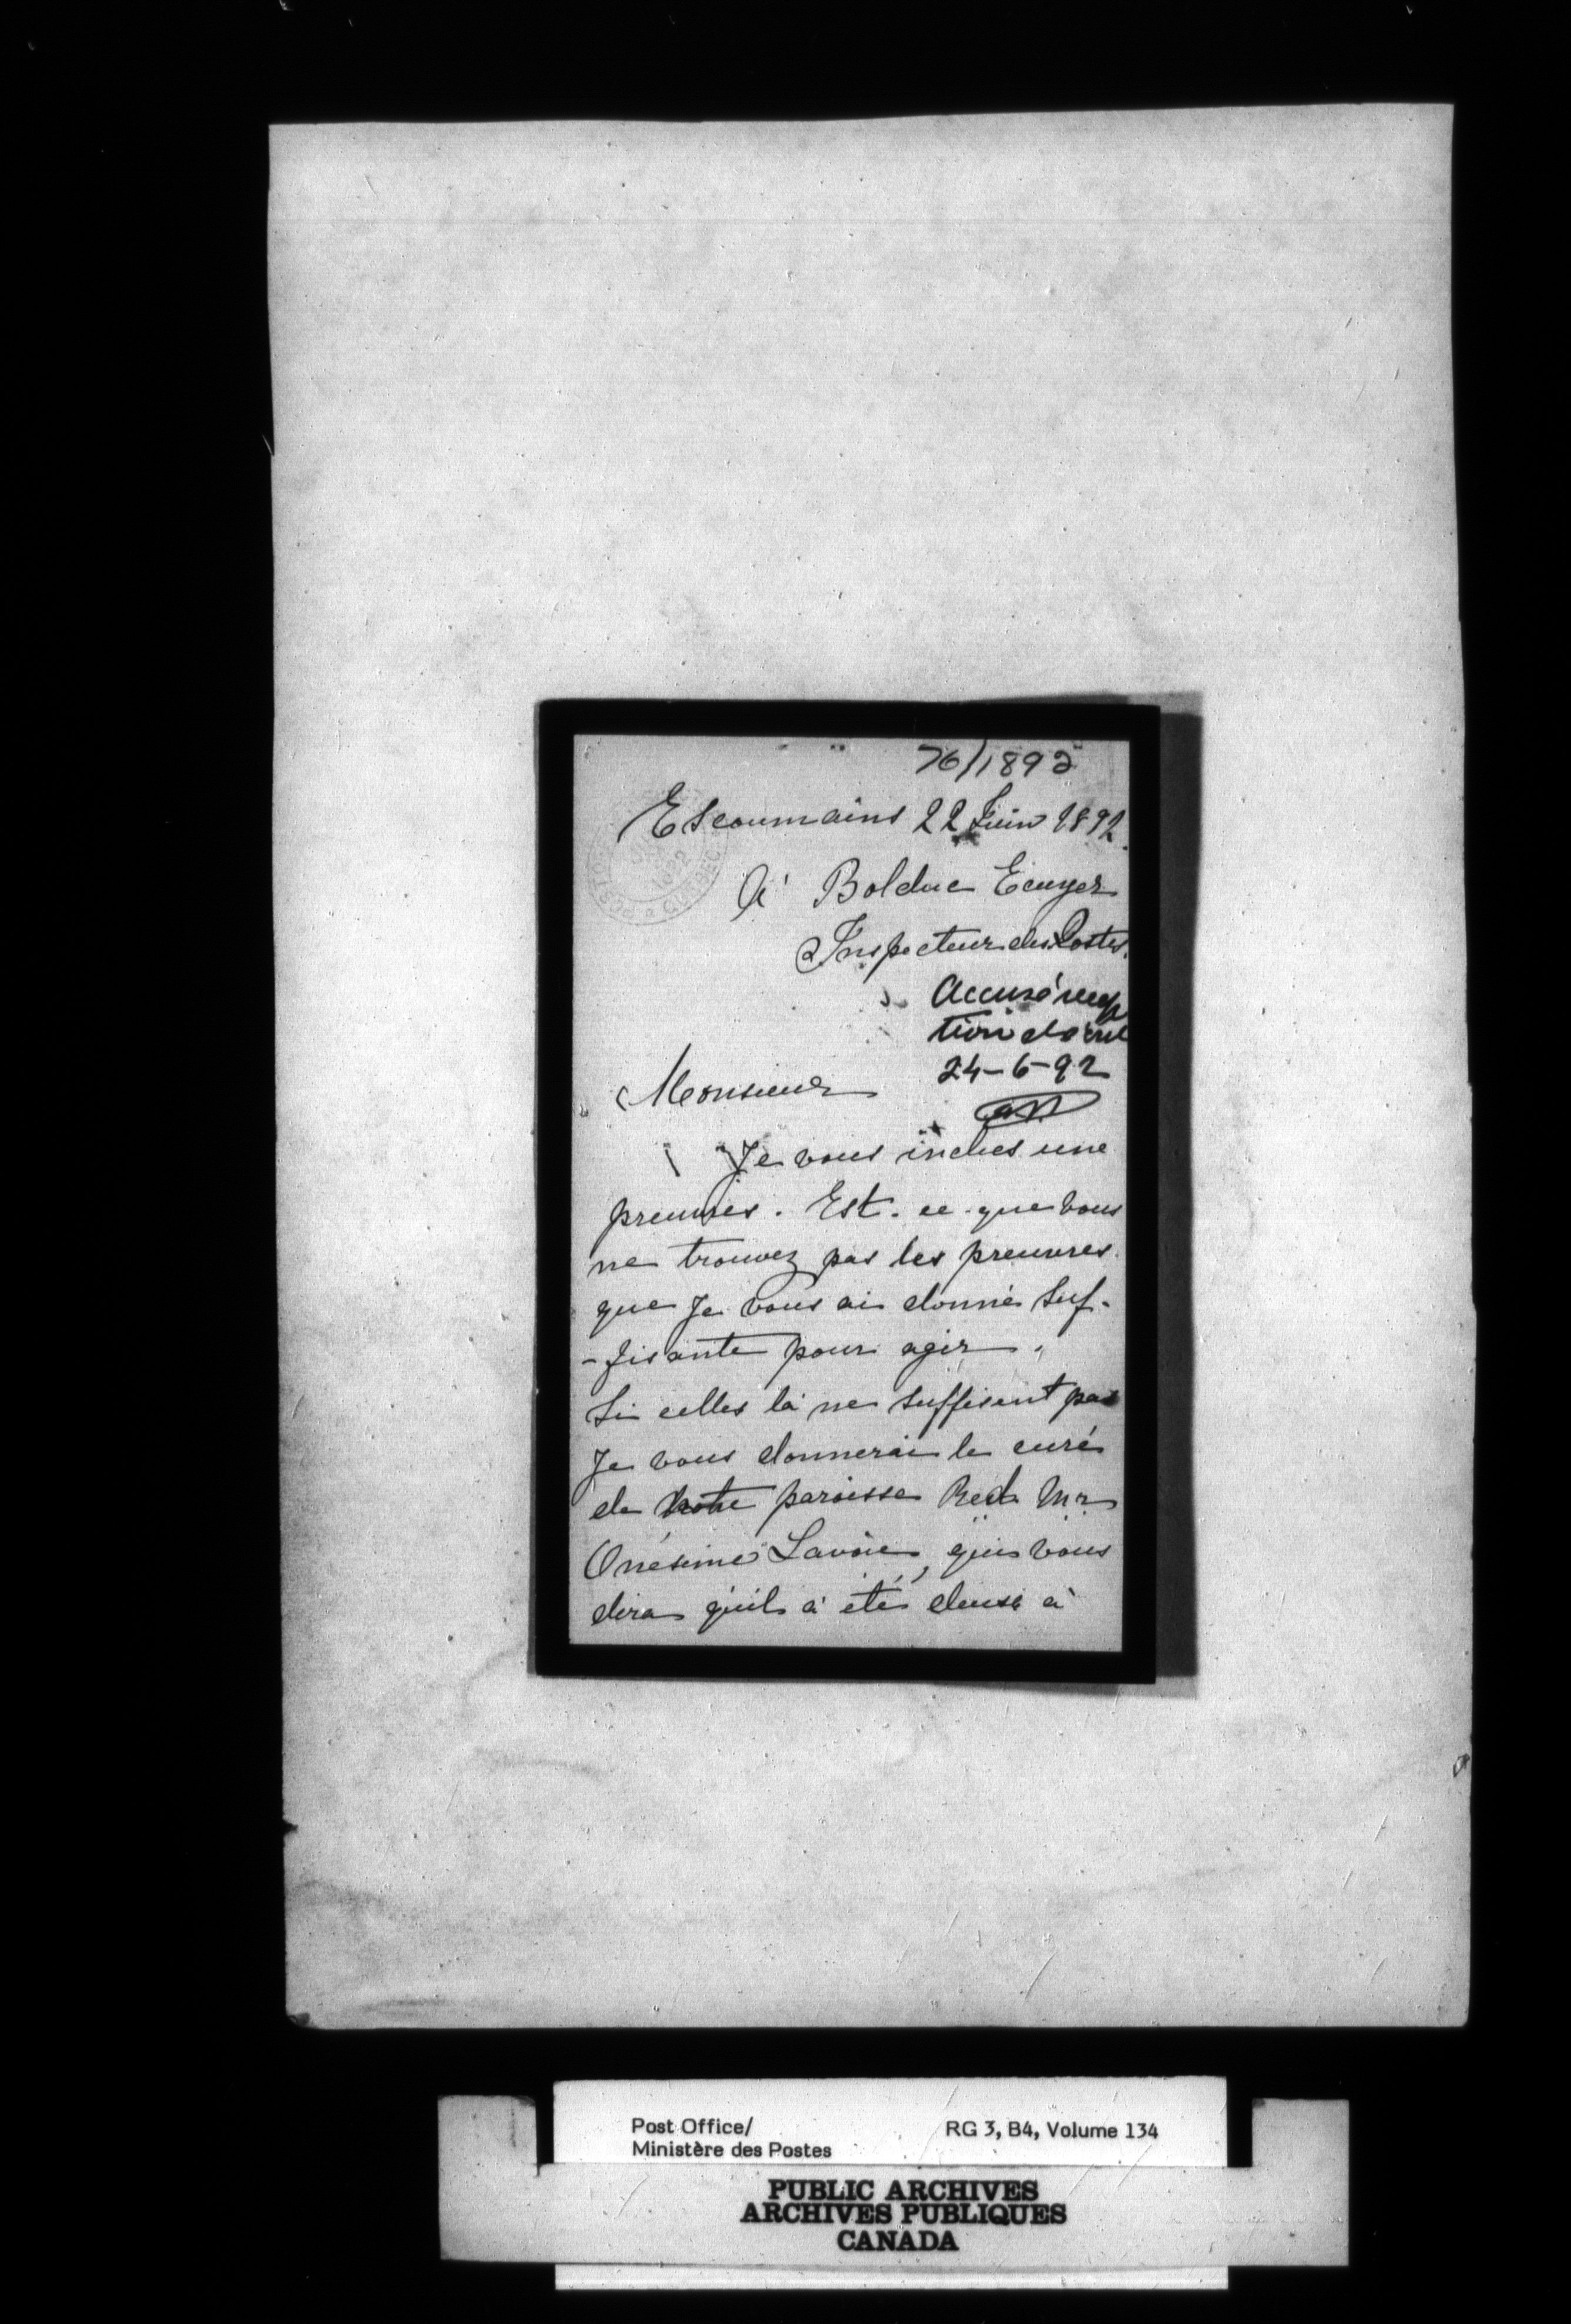 76/1892
Escoumains 22 Juin 1892.
A Bolduc Ecuyer
Inspecteur des Postes.
Accusé récep
tion
24-6-92
Monsieur
Je vous inclus une
preuves. Est-ce que vous
ne trouvez pas les preuvres
que Je vous ai donné suf-
-fisante pour agir.
Si celles là ne suffisent pas
Je vous donnerai le curé
de notre paroisse Red. Mr
Onésime Lavoie, qui vous
dira qu'il à été deux à
Post Office/
Ministère des Postes
RG 3, B4, Volume 134
PUBLIC ARCHIVES
ARCHIVES PUBLIQUES
CANADA